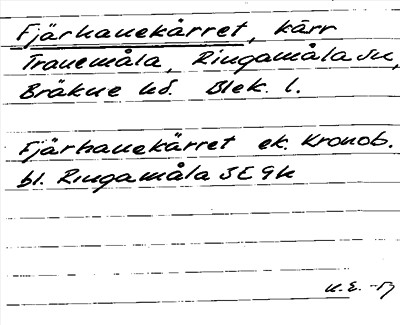 Fjärhanekärret, kärr
Tranemåla, Ringamåla sn,
Bräkne hd. Blek. l.
Fjärhanekärret ek. Kronob.
bl. Ringamåla SE 9h